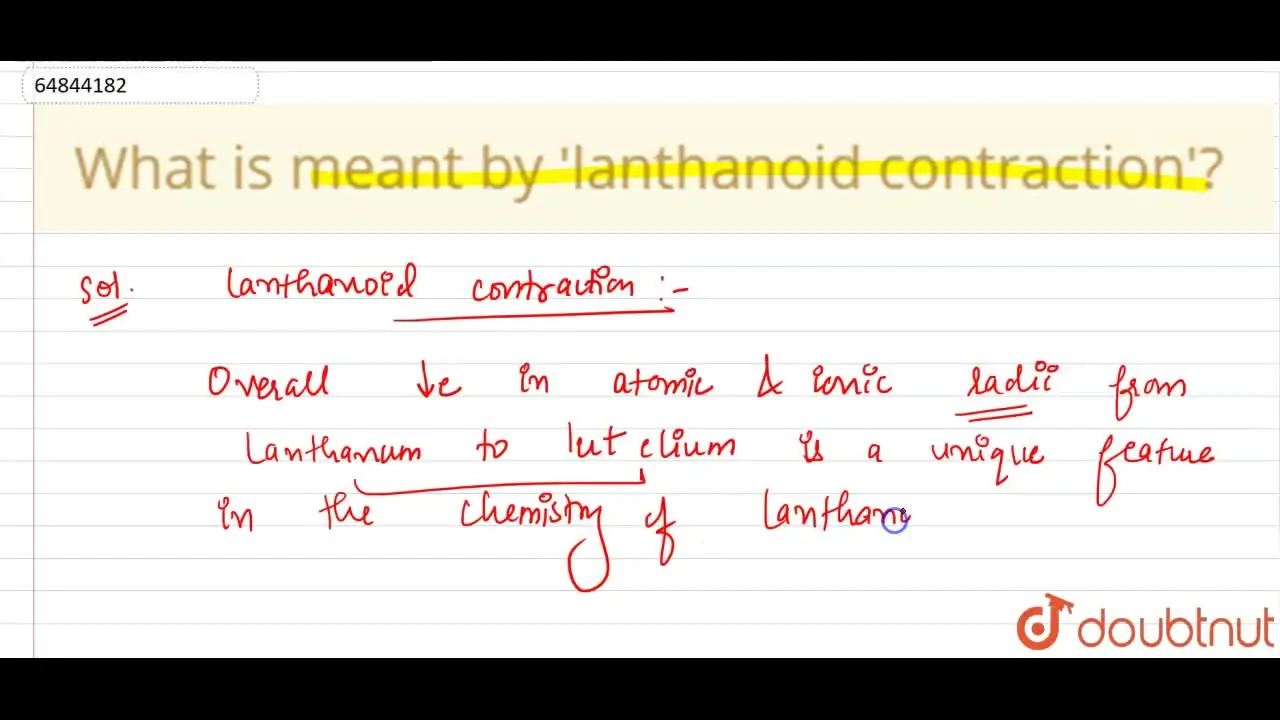 64844182
What is meant by 'lanthanoid contraction'?
Sol. Lanthanoid contraction :-
Overall ↓e in atomic & ionic radii from
Lanthanum to lutelium is a unique feature
in the chemistry of Lanthan
doubtnut